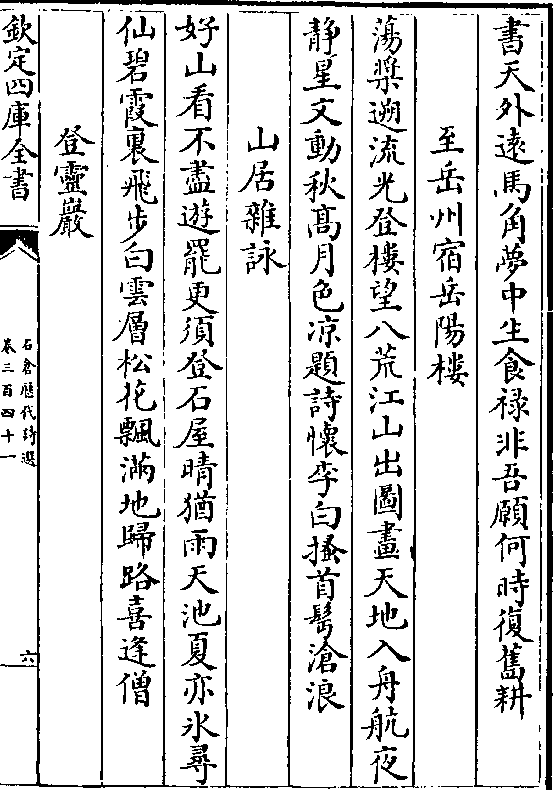 書天外遠馬角夢中生食禄非吾願何時復舊耕
至岳州宿岳陽樓
蕩槳遡流光登樓望八荒江山出圖畫天地入舟航夜
静星文動秋髙月色凉題詩懷李白搔首髩滄浪
山居雜詠
好山看不盡遊罷更須登石屋晴猶雨天池夏亦氷尋
仙碧霞裏飛步白雲層松花飄滿地歸路喜逢僧
登靈巖
欽定四庫全書
石倉歴代詩選
卷三百四十一
六